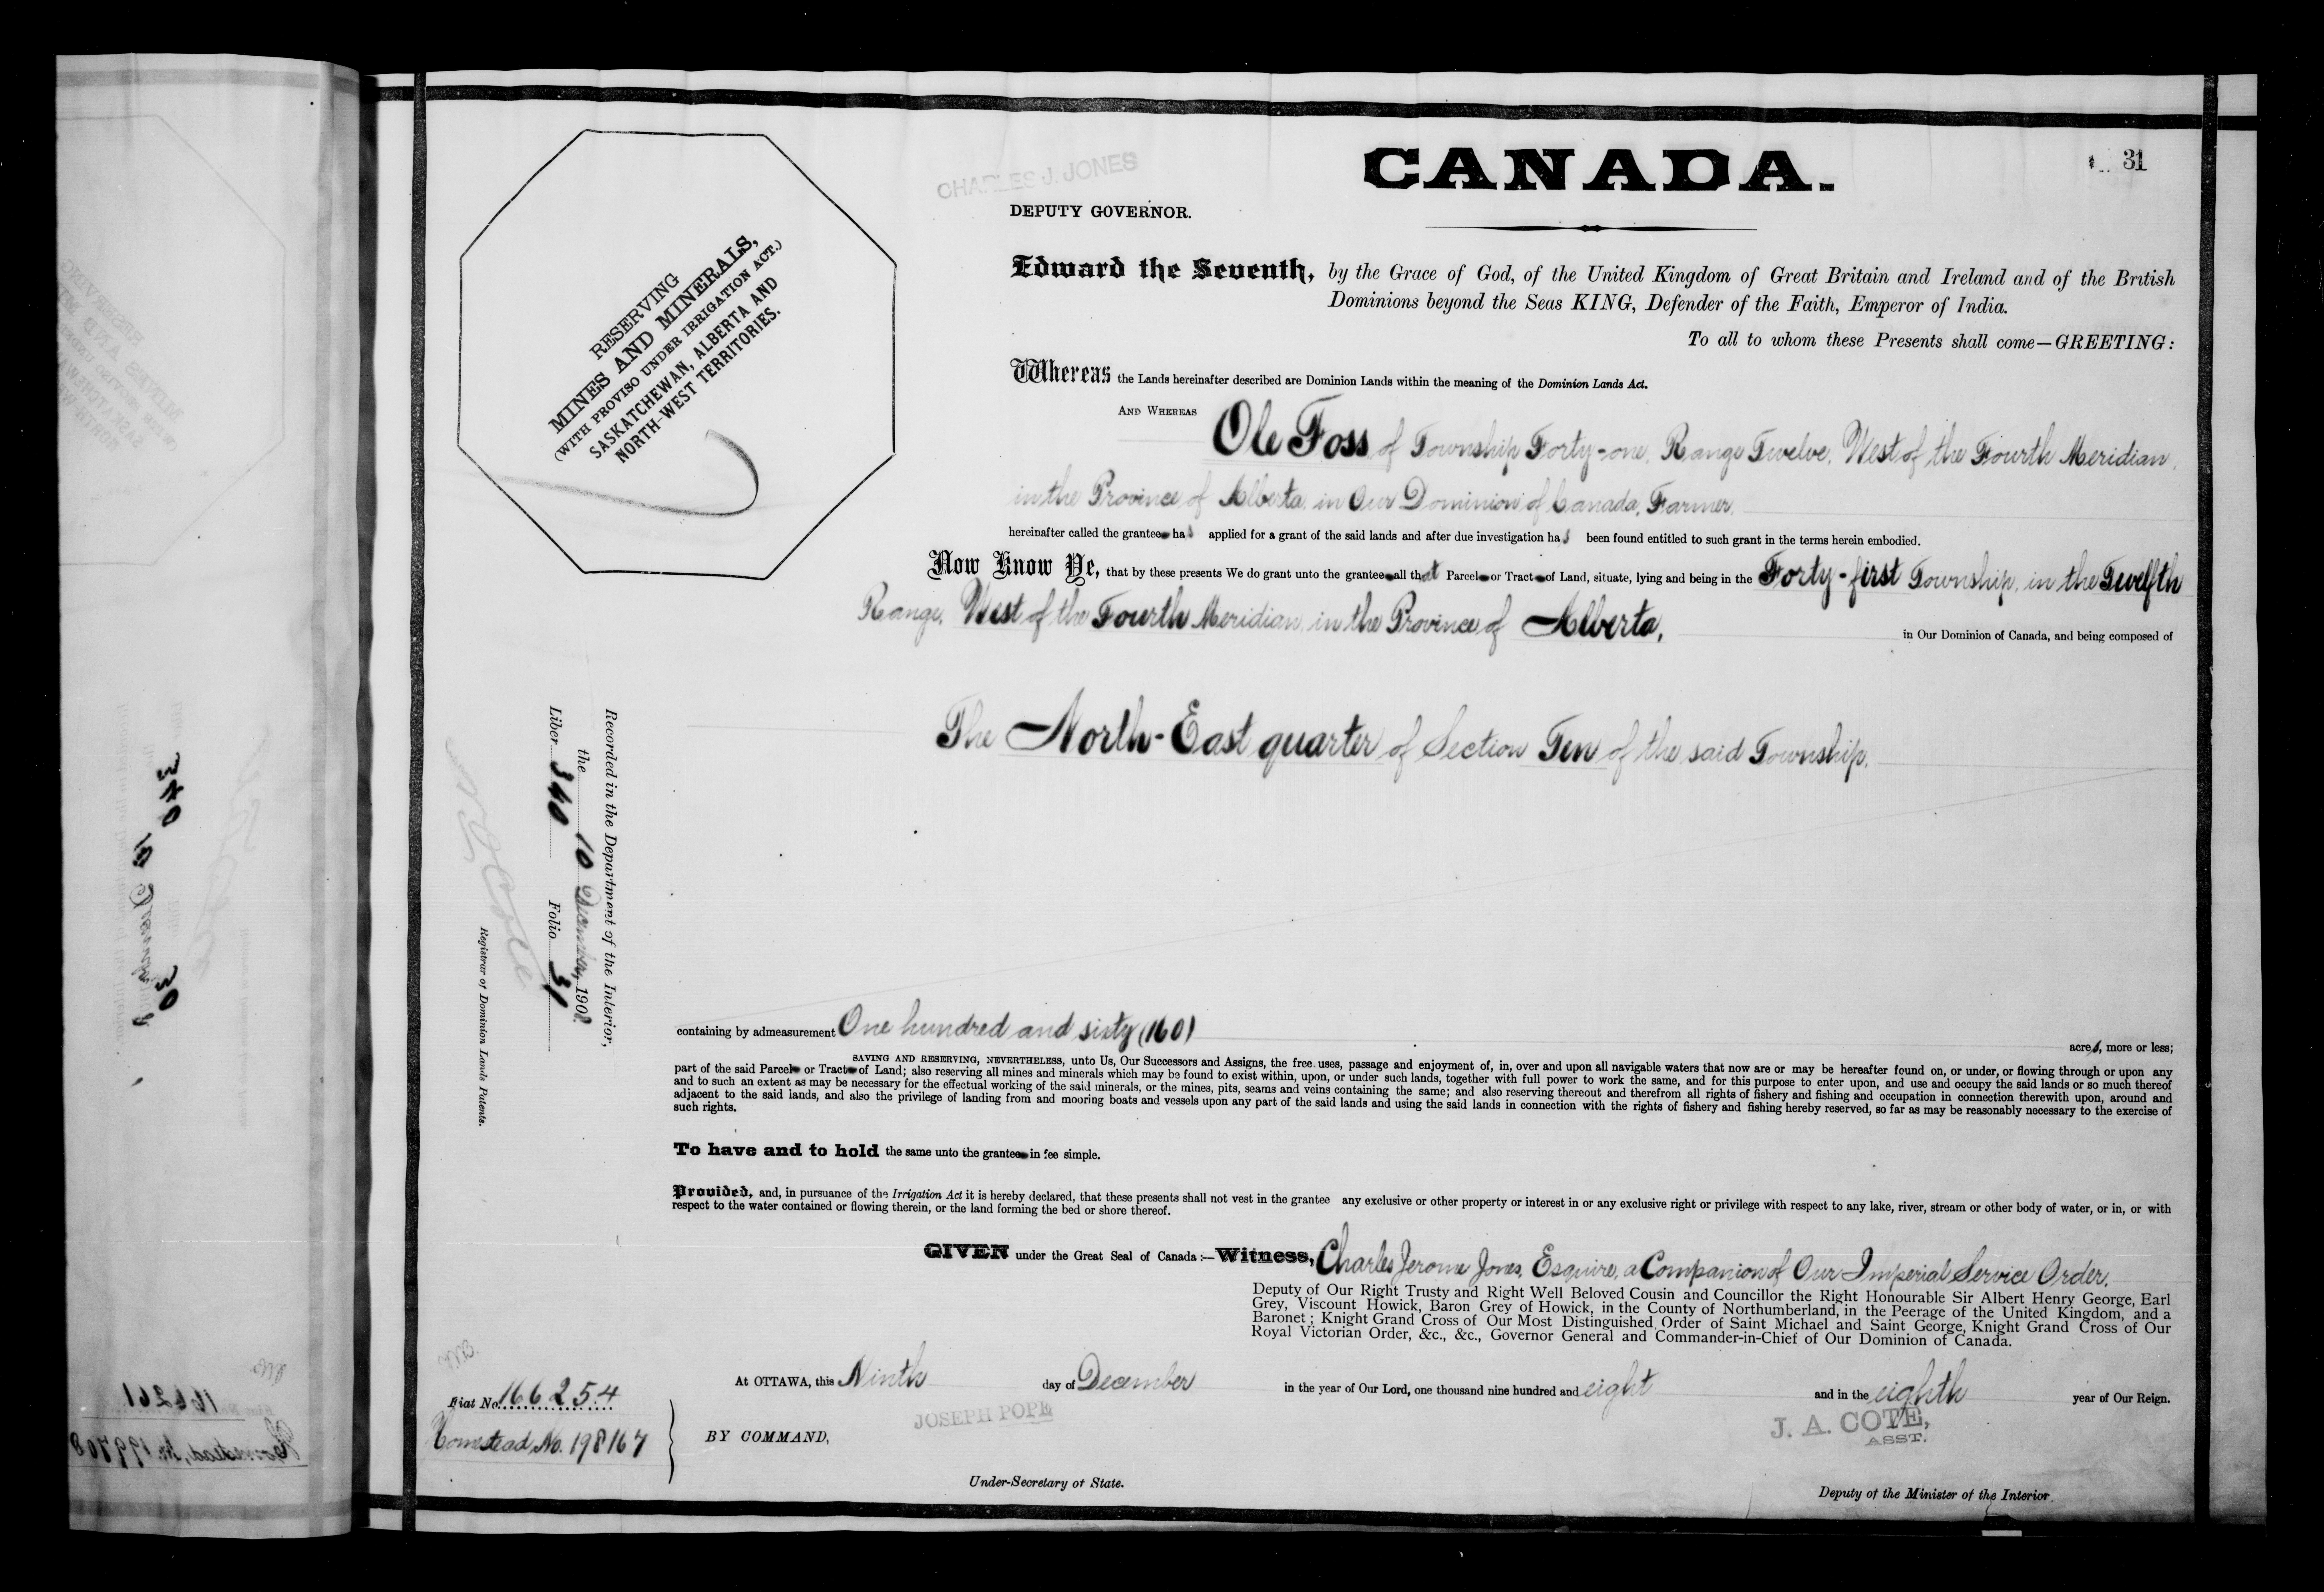 CANADA.
31
CHARLES J. JONES
DEPUTY GOVERNOR.
RESERVING
MINES AND MINERALS,
(WITH PROVISO UNDER IRRIGATION ACT.)
SASKATCHEWAN, ALBERTA AND
NORTH-WEST TERRITORIES.
Edward the Seventh, by the Grace of God, of the United Kingdom of Great Britain and Ireland and of the British
Dominions beyond the Seas KING, Defender of the Faith, Emperor of India.
To all to whom these Presents shall come—GREETING:
Whereas the Lands hereinafter described are Dominion Lands within the meaning of the Dominion Lands Act.
AND WHEREAS Ole Foss of Township Forty-one, Range Twelve, West of the Fourth Meridian,
in the Province of Alberta, in Our Dominion of Canada, Farmer,
hereinafter called the grantee has applied for a grant of the said lands and after due investigation has been found entitled to such grant in the terms herein embodied.
Now Know Ye, that by these presents We do grant unto the grantee all that Parcel or Tract of Land, situate, lying and being in the Forty-first Township, in the Twelfth
Range, West of the Fourth Meridian, in the Province of Alberta, in Our Dominion of Canada, and being composed of
The North-East quarter of Section Ten of the said Township.
Recorded in the Department of the Interior,
the 10 December, 1908.
Liber 340 Folio 31
Registrar of Dominion Lands Patents.
containing by admeasurement One hundred and sixty (160) acres, more or less;
SAVING AND RESERVING, NEVERTHELESS, unto Us, Our Successors and Assigns, the free uses, passage and enjoyment of, in, over and upon all navigable waters that now are or may be hereafter found on, or under, or flowing through or upon any
part of the said Parcel or Tract of Land; also reserving all mines and minerals which may be found to exist within, upon, or under such lands, together with full power to work the same, and for this purpose to enter upon, and use and occupy the said lands or so much thereof
and to such an extent as may be necessary for the effectual working of the said minerals, or the mines, pits, seams and veins containing the same; and also reserving thereout and therefrom all rights of fishery and fishing and occupation in connection therewith upon, around and
adjacent to the said lands, and also the privilege of landing from and mooring boats and vessels upon any part of the said lands and using the said lands in connection with the rights of fishery and fishing hereby reserved, so far as may be reasonably necessary to the exercise of
such rights.
To have and to hold the same unto the grantee in fee simple.
Provided, and, in pursuance of the Irrigation Act it is hereby declared, that these presents shall not vest in the grantee any exclusive or other property or interest in or any exclusive right or privilege with respect to any lake, river, stream or other body of water, or in, or with
respect to the water contained or flowing therein, or the land forming the bed or shore thereof.
GIVEN under the Great Seal of Canada:—Witness, Charles Jerome Jones, Esquire, a Companion of Our Imperial Service Order.
Deputy of Our Right Trusty and Right Well Beloved Cousin and Councillor the Right Honourable Sir Albert Henry George, Earl
Grey, Viscount Howick, Baron Grey of Howick, in the County of Northumberland, in the Peerage of the United Kingdom, and a
Baronet; Knight Grand Cross of Our Most Distinguished Order of Saint Michael and Saint George, Knight Grand Cross of Our
Royal Victorian Order, &c., &c., Governor General and Commander-in-Chief of Our Dominion of Canada.
At OTTAWA, this Ninth day of December in the year of Our Lord, one thousand nine hundred and eight and in the eighth year of Our Reign.
Fiat No. 166254
Homestead, No. 198167
BY COMMAND,
JOSEPH POPE
Under-Secretary of State.
J. A. COTE,
ASST.
Deputy of the Minister of the Interior
340
30
166261
Homestead, No. 199708